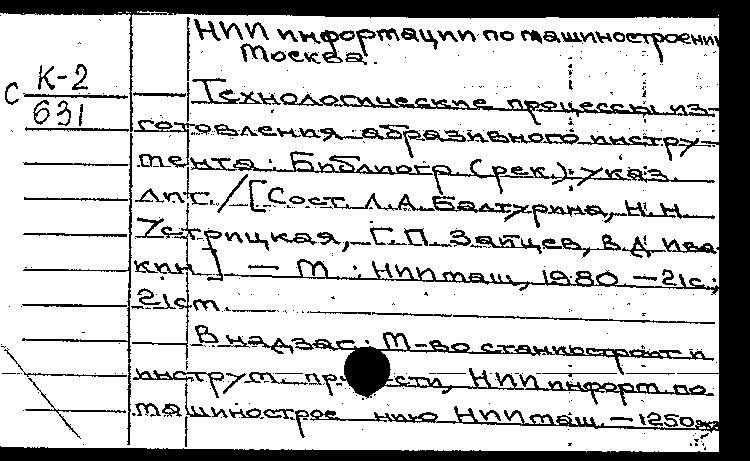 НИИ информации по машиностроени
Москва.
С К-2
631
Технологические процессы из-
готовления абразивного инстру-
мента: Библиогр. (рек.) указ.
лит. / [Сост. Л.А. Балтурина, Н.Н.
Устрицкая, Г.П. Зайцев, В.Д. Ива-
кин] — М.: НИИмаш, 1980. — 21с.;
21см.
В надзаг.: М-во станкостроит и
инструм. пр сти, НИИинформ по
машинострое нию НИИмаш. — 1250экз